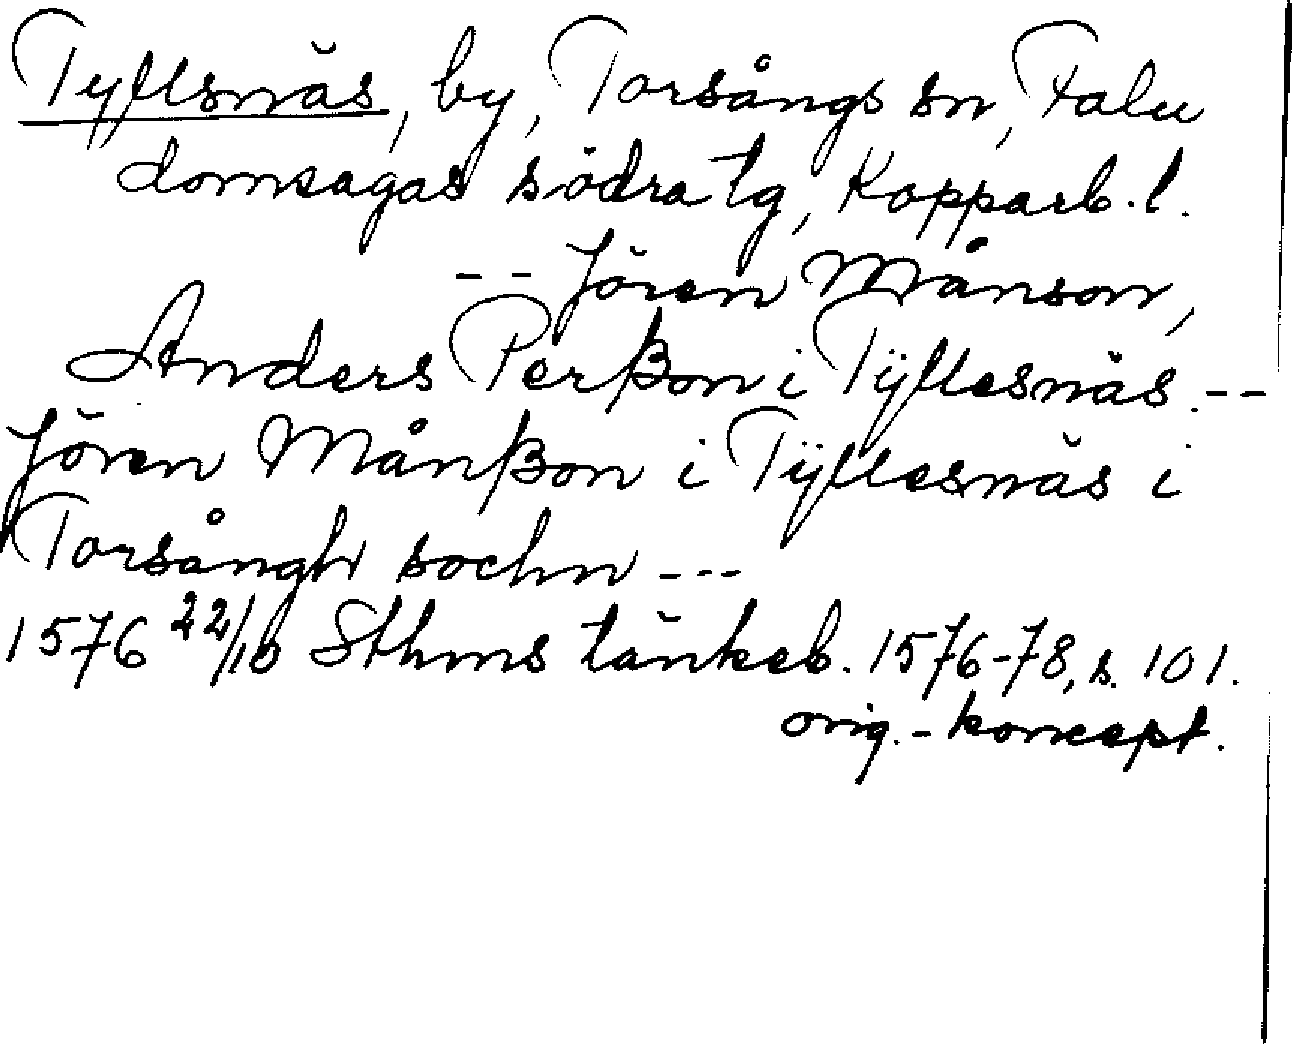 Tyllsnäs, by, Torsångs sn, Falu
domsagas södra tg, Kopparb. l.
-- Jören Månson,
Anders Perßon i Tÿllesnäs. --
Jören Månßon i Tÿllesnäs i
Torsångh sochn ---
1576 22/10 Sthms tänkeb. 1576-78, s. 101.
orig.-koncept.